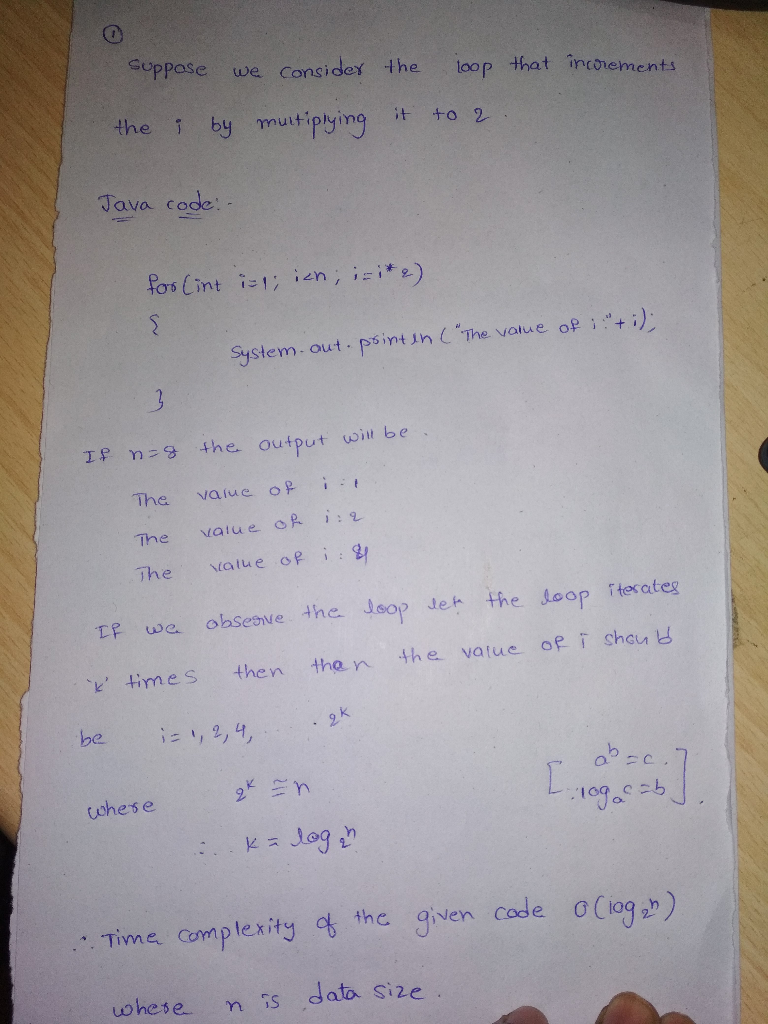 ①
Suppose we consider the loop that increments
the i by multiplying it to 2.
Java code:-
for(int i=1; i<n; i=i*2)
{
System.out.println("The value of i:"+i);
}
If n=8 the output will be.
The value of i:1
The value of i:2
The value of i:4
If we observe the loop let the loop iterates
'k' times then then the value of i should
be i=1,2,4, ... 2^k
where 2^k ≅ n
[a^b=c. ∴ log_a c=b].
∴ k = log_2 n
∴ Time complexity of the given code O(log_2 n)
where n is data size.